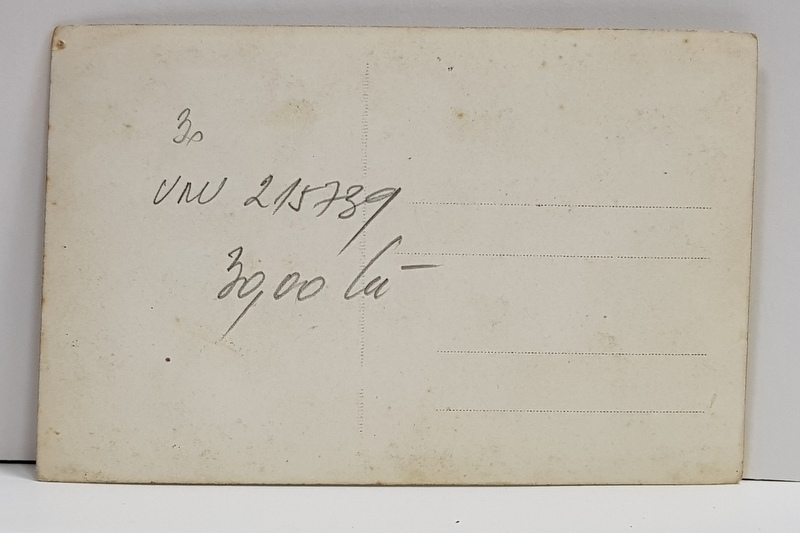 30
VNV 215739
30,00 lei